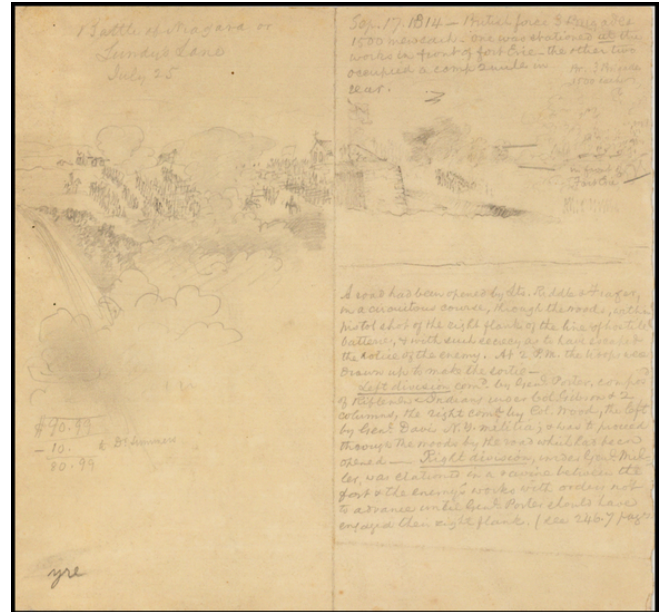 Battle of Niagara or
Lundy's Lane
July 25
$90.99
- 10. to Dr
80.99
yre
Sep. 17. 1814 — British force 3 Brigades
1500 men each - one was stationed at the
works in front of fort Erie - the other two
occupied a camp 2 mile in
rear.
3 Brigade
1500 each
in front of
Fort Erie
A road had been opened by Lts. Riddle & Frazer,
in a circuitous course, through the woods, within
pistol shot of the right flank of the line of hostile
batteries, & with such secrecy as to have escaped
the notice of the enemy. At 2 P.M. the troops were
drawn up to make the sortie —
Left division, comd. by Genl. Porter, compos
of Riflemen & Indians under Col. Gibson & 2
columns, the right comd. by Col. Wood, the left
by Genl. Davis N.Y. militia; & was to proceed
through the woods by the road which has been
opened — Right division, under Genl. Mil-
ler, was stationed in a ravine between the
fort & the enemy's works with orders not
to advance until Genl. Porter should have
engaged their right flank. (see 246.7 page